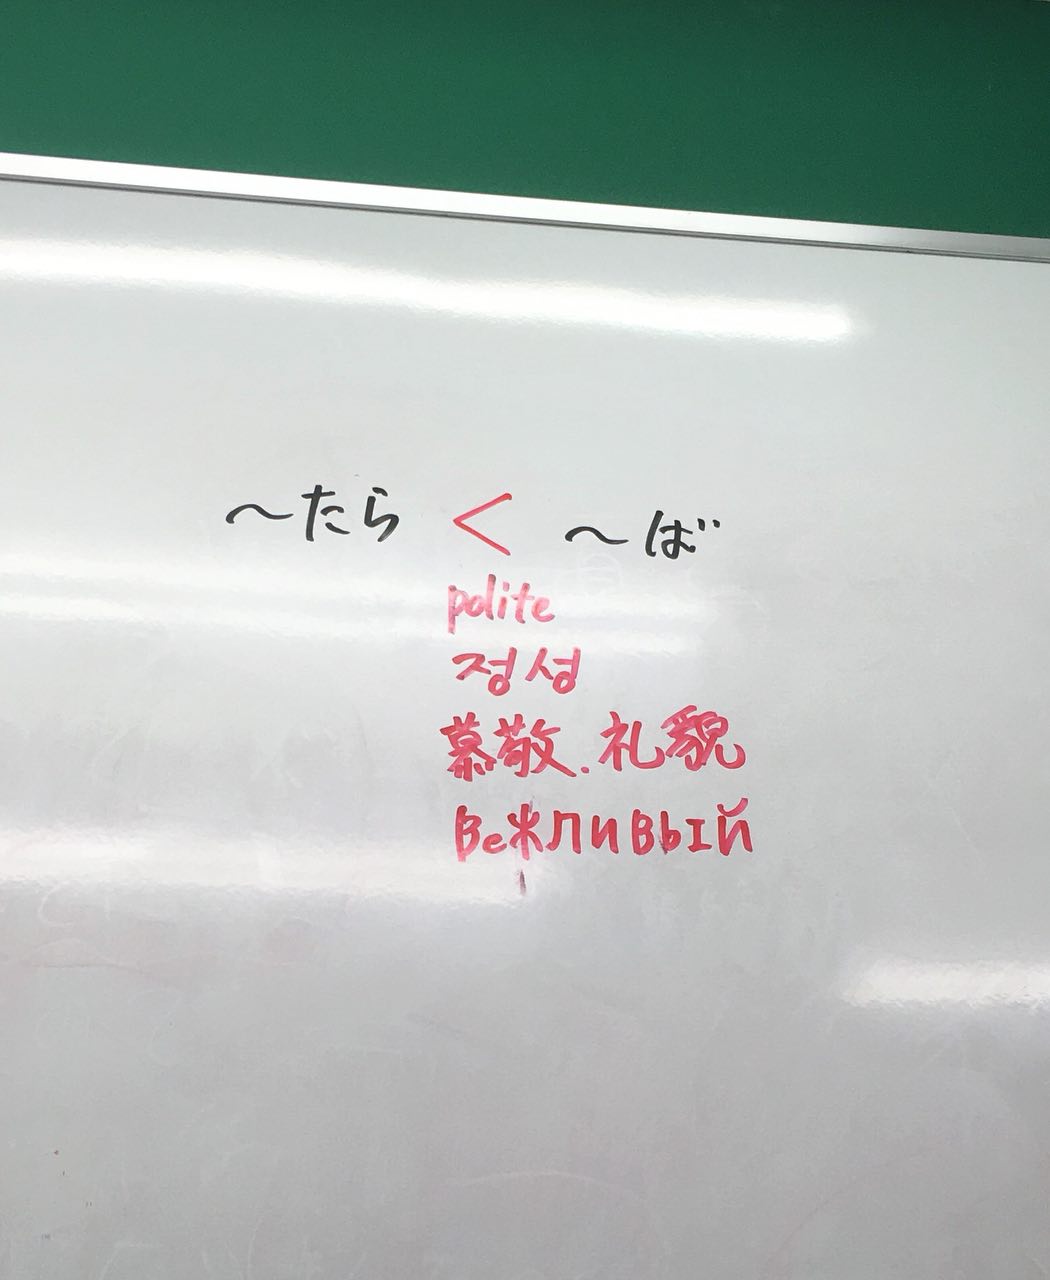 ～たら < ～ば
polite
정성
慕敬.礼貌
Вежливый